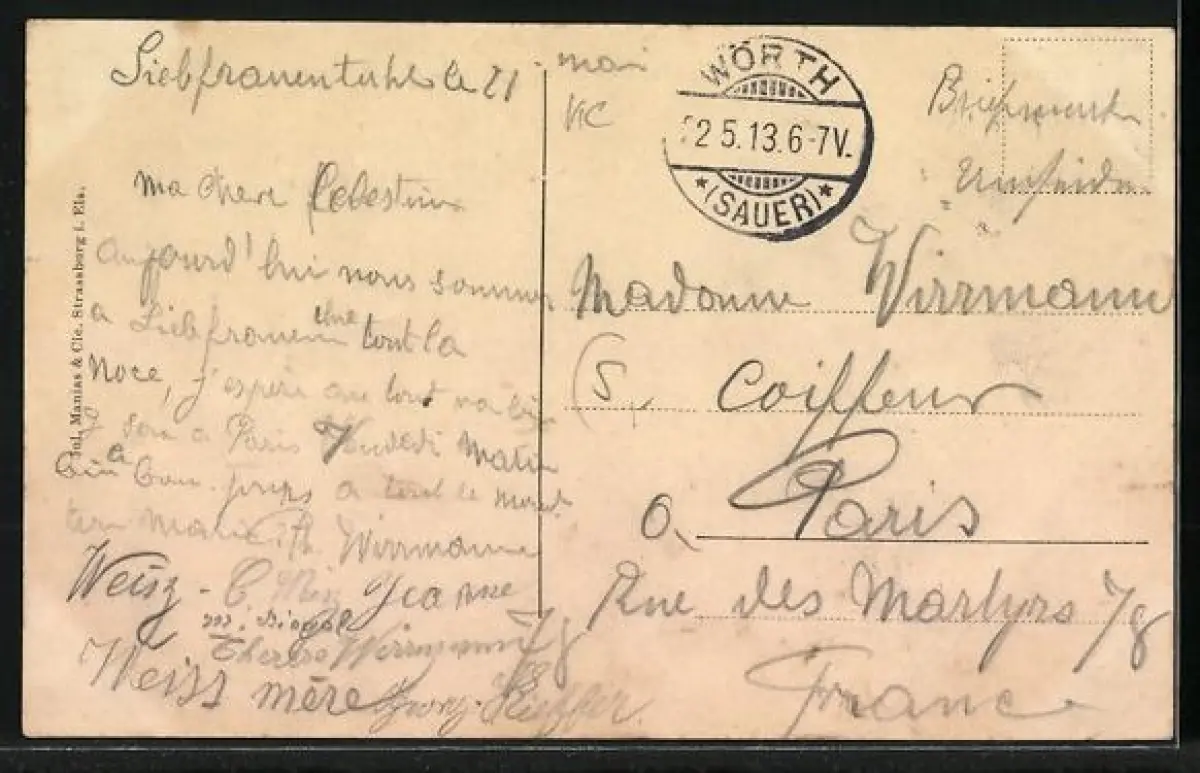 Liebfrauenthal le 21 mai
ma chere Celestine
aujourd'hui nous sommes
a Liebfrauen tout la
Noce, j'espère que tout va bien
a Paris Vendedi Matin
a tout le monde
ton mari Wirrmann
Weisz - Jeanne
Therese Wirrmann
Weiss mère Georg. Kieffer.
Jul. Manias & Cie. Strassburg i. Els.
WÖRTH
2 5.13.6-7V.
(SAUER)
Briefmarke
Madame Wirrmann
(S, Coiffeur
a Paris
Rue des Martyrs 78
France